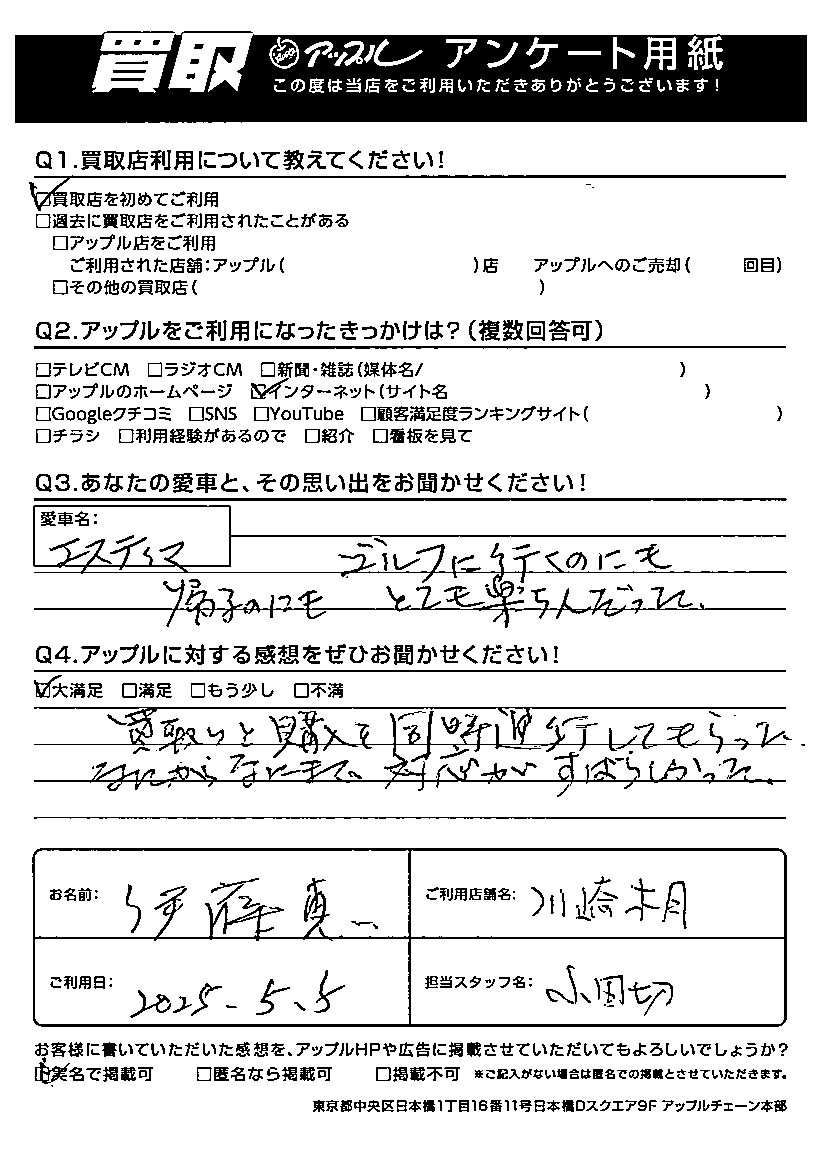 買取 アップル アンケート用紙
この度は当店をご利用いただきありがとうございます!
Q1.買取店利用について教えてください!
☑買取店を初めてご利用
□過去に買取店をご利用されたことがある
□アップル店をご利用
ご利用された店舗:アップル( )店 アップルへのご売却( 回目)
□その他の買取店( )
Q2.アップルをご利用になったきっかけは?(複数回答可)
□テレビCM □ラジオCM □新聞・雑誌(媒体名/ )
□アップルのホームページ ☑インターネット(サイト名 )
□Googleクチコミ □SNS □YouTube □顧客満足度ランキングサイト( )
□チラシ □利用経験があるので □紹介 □看板を見て
Q3.あなたの愛車と、その思い出をお聞かせください!
愛車名:
エスティマ ゴルフに行くのにも
帰るのにも とても楽ちんだった。
Q4.アップルに対する感想をぜひお聞かせください!
☑大満足 □満足 □もう少し □不満
買取りと購入を同時進行してもらった。
なにからなにまで、対応がすばらしかった。
お名前: 伊藤真一 ご利用店舗名: 川崎木月
ご利用日: 2025.5.5 担当スタッフ名: 小田切
お客様に書いていただいた感想を、アップルHPや広告に掲載させていただいてもよろしいでしょうか?
☑実名で掲載可 □匿名なら掲載可 □掲載不可 ※ご記入がない場合は匿名での掲載とさせていただきます。
東京都中央区日本橋1丁目16番11号日本橋Dスクエア9F アップルチェーン本部